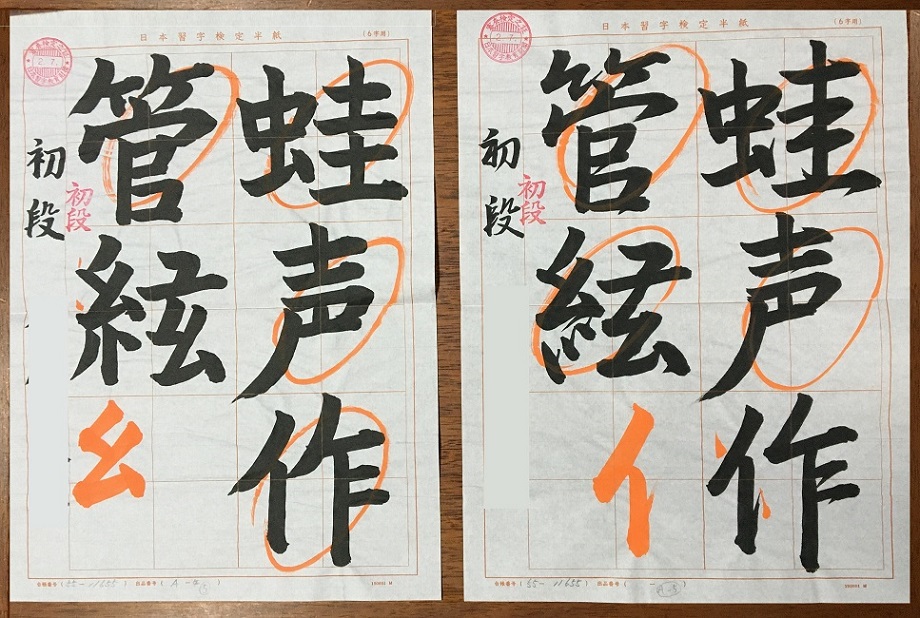 日本習字検定半紙
(6字用)
2.7.
蛙声作
管絃
幺
初段
初段
(55-11655) 出品番号 (A-
日本習字検定半紙
(6字用)
2.7.
蛙声作
管絃
亻
初段
初段
(55-11655) 出品番号